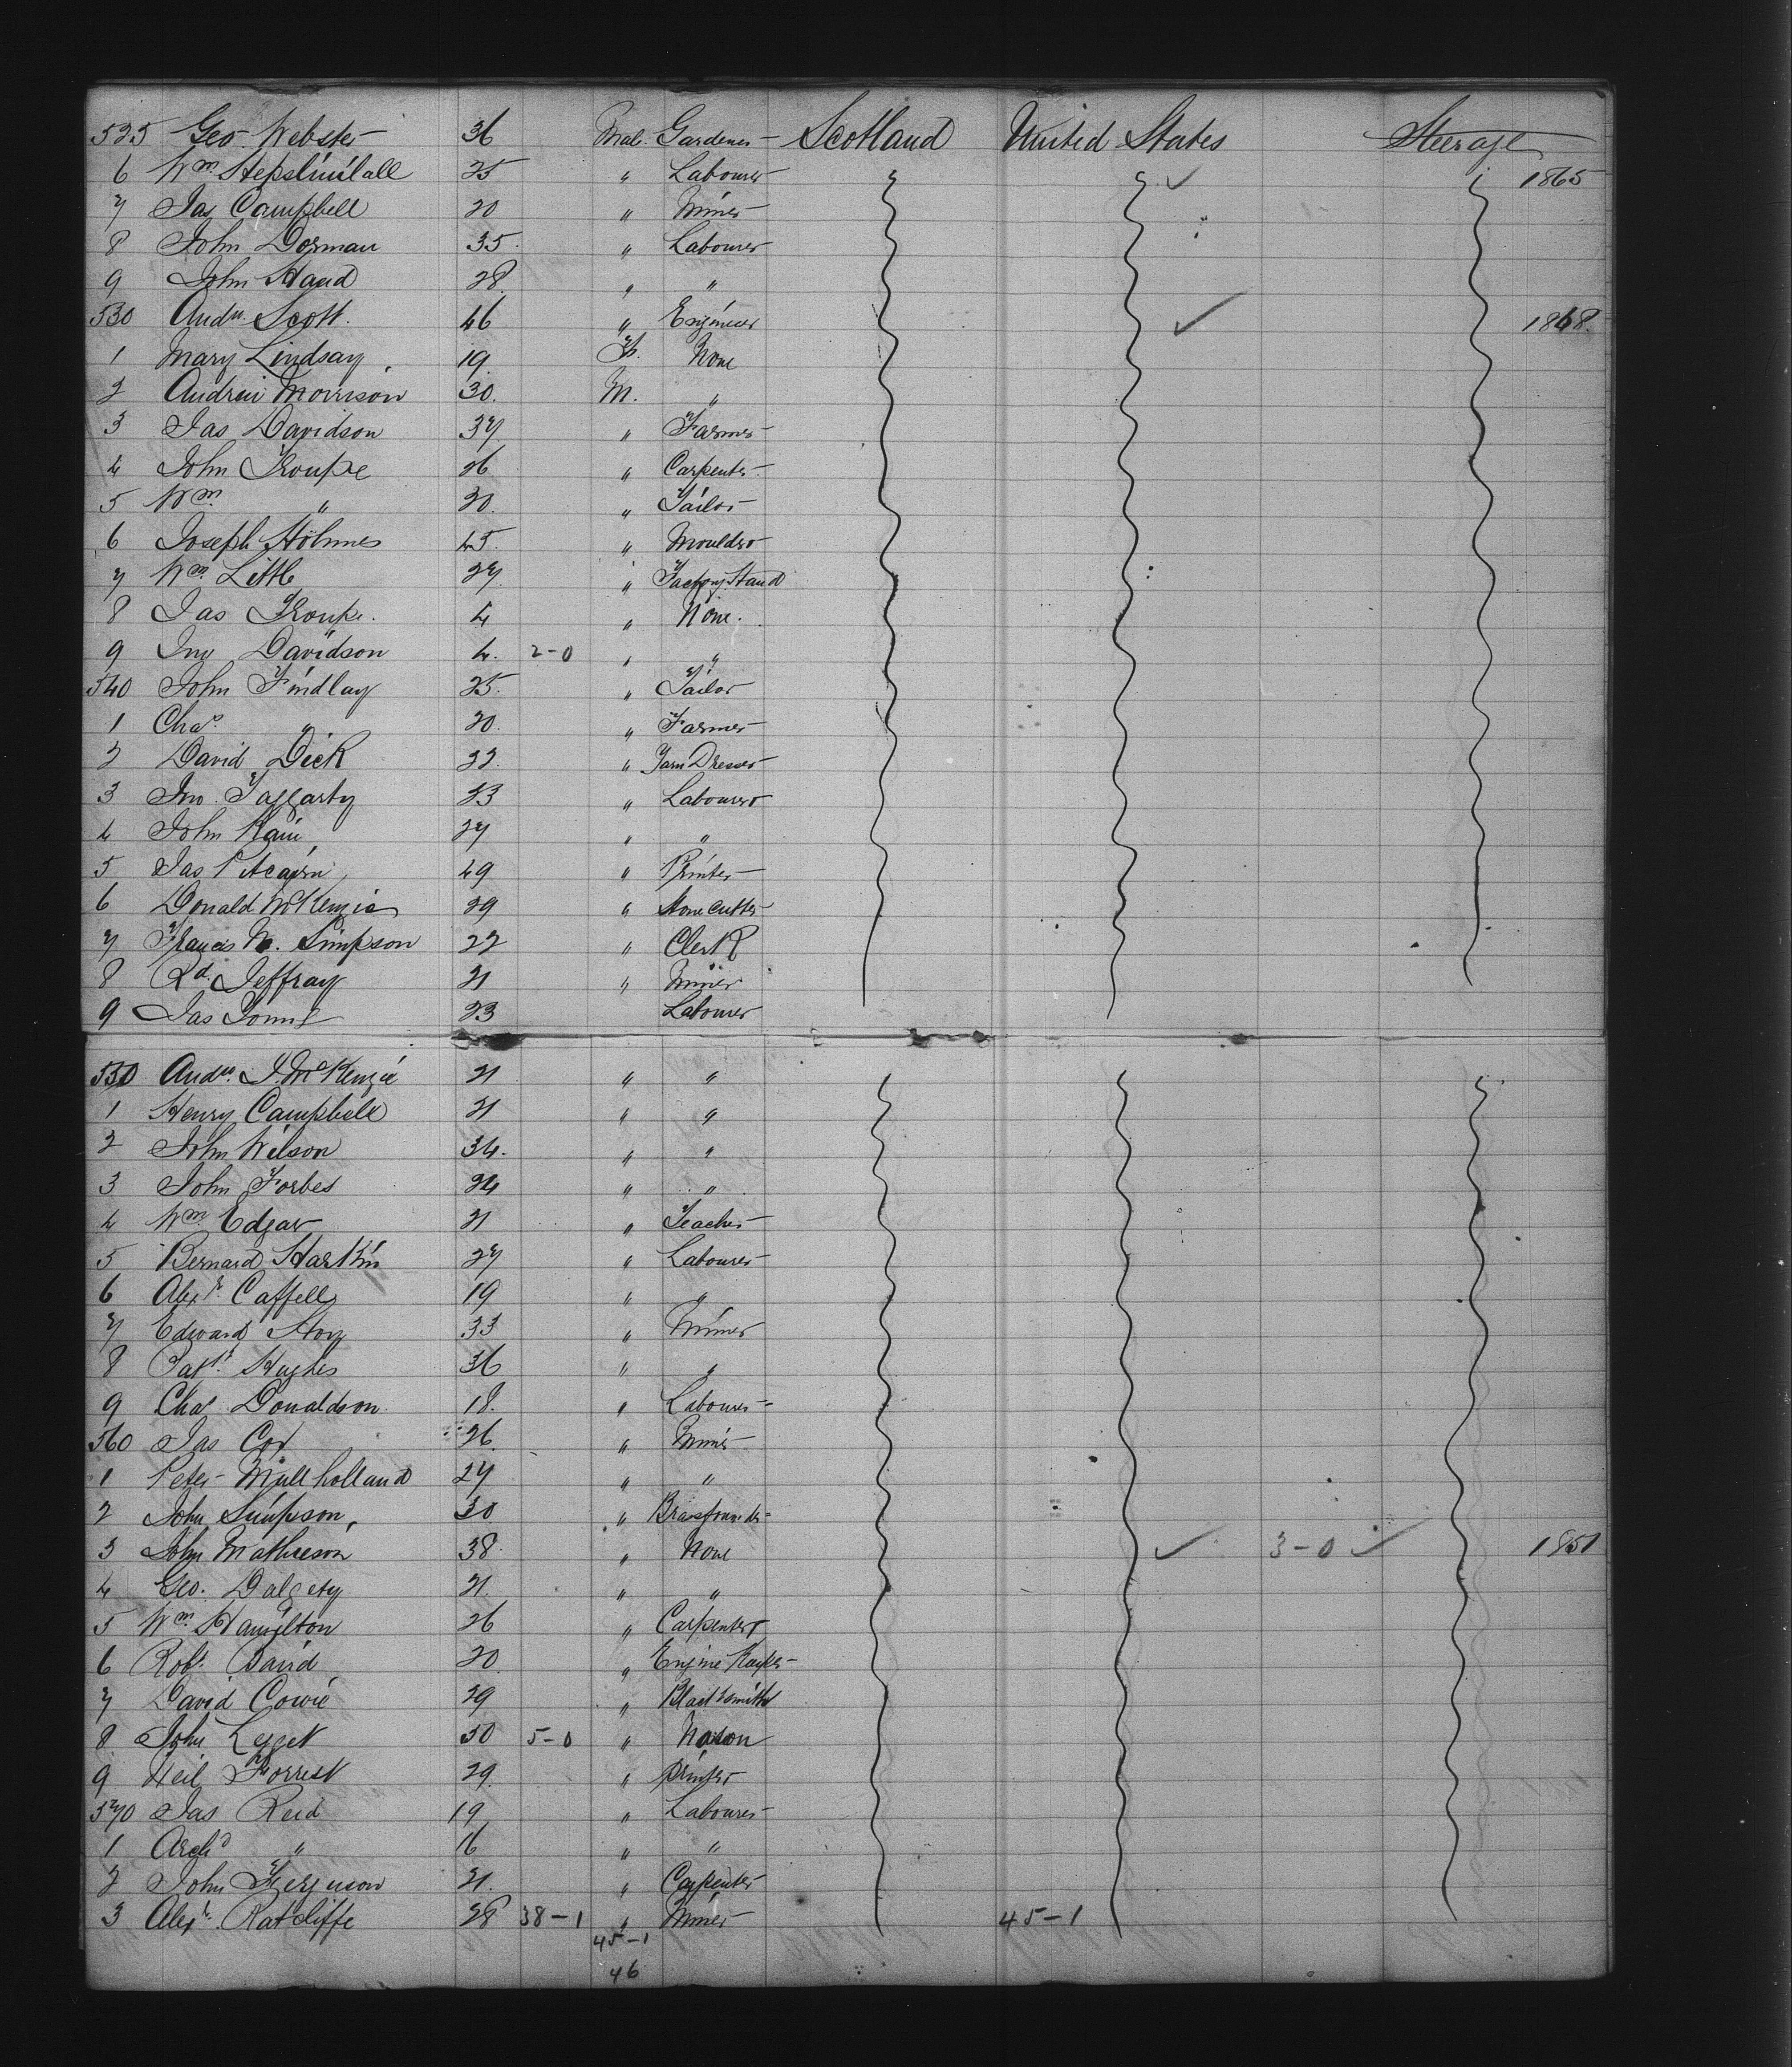 525 Geo. Webster 36 Mal. Gardener Scotland United States Steerage
6 Wm 25 " Labourer 1865
7 Jas Campbell 20 " Miner
8 John Dorman 35 " Labourer
9 John Hand 28 " "
530 Andw. Scott. 46 " Engineer 1868.
1 Mary Lindsay 19 F. None
2 Andrew Morrison 30. M. "
3 Jas Davidson 37 " Farmer
4 John 26 " Carpenter
5 Wm " 20. " Tailor
6 Joseph Holmes 45. " Moulder
7 Wm. Little 27 " Factory Hand
8 Jas 4 " None.
9 Jno Davidson 4. 2-0 " "
540 John Findlay 25. " Tailor
1 Chas. " 20. " Farmer
2 David Dick 22. " Yarn Dresser
3 Jno. Taggarty 23 " Labourer
4 John 27 " "
5 Jas Pitcairn 49 " Printer
6 Donald McKenzie 29 " Stone cutter
7 Francis M. Simpson 22 " Clerk
8 Rd. Jeffray 21 " Miner
9 Jas 23 Labourer
550 Andw. J. McKenzie 21 " "
1 Henry Campbell 21 " "
2 John Wilson 34. " "
3 John Forbes 24 " "
4 Wm Edgar 21 " Teacher
5 Bernard Harkin 27 " Labourer
6 Alexr. Caffell 19 " "
7 Edward Story 33 " Miner
8 Patk. Hughes 36 " "
9 Chas Donaldson 18. " Labourer
560 Jas Cox 26. " Miner
1 Peter Mullholland 27 " "
2 John Simpson 30 " Brassfounder
3 John Mathieson 38. " None 3-0 1851
4 Geo. Dalgety 21. " "
5 Wm. Hamilton 26 " Carpenter
6 Robt. Baird 20. " Engine Keeper
7 David Cowie 29 " Blacksmith
8 John 50 5-0 " Mason
9 Neil Forrest 29. " Printer
570 Jas Reid 19 " Labourer
1 Archd " 16 " "
2 John Ferguson 21. " Carpenter
3 Alexr. Ratcliffe 28 38-1 " Miner 45-1
45-1
46